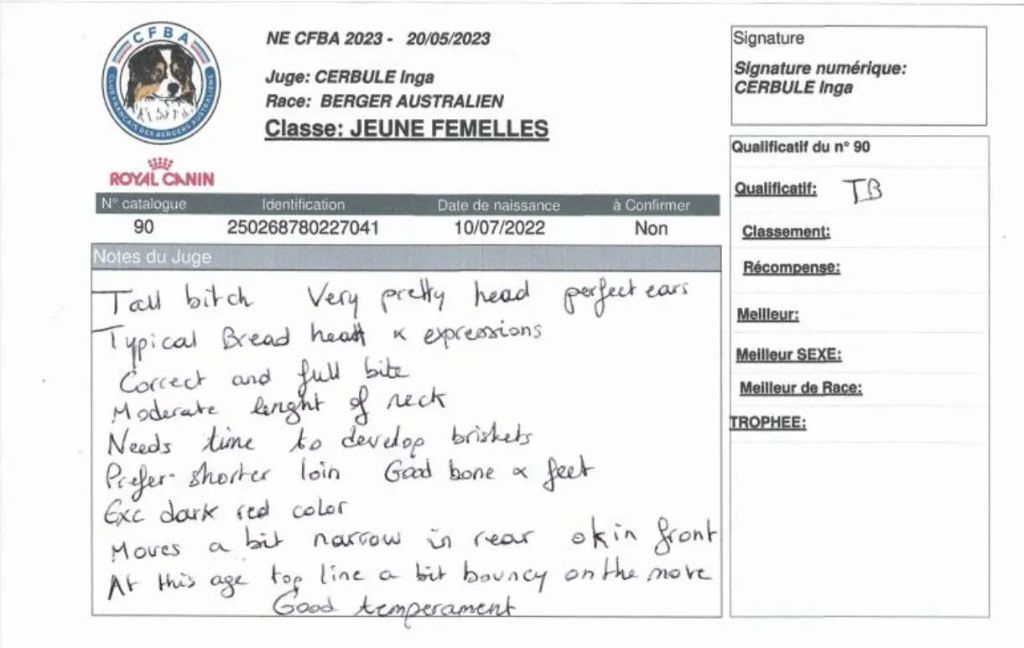 CFBA
CLUB FRANÇAIS DES BERGERS AUSTRALIENS
ROYAL CANIN
NE CFBA 2023 - 20/05/2023
Juge: CERBULE Inga
Race: BERGER AUSTRALIEN
Classe: JEUNE FEMELLES
N° catalogue Identification Date de naissance à Confirmer
90 250268780227041 10/07/2022 Non
Notes du Juge
Tall bitch Very pretty head perfect ears
Typical Bread head & expressions
Correct and full bite
Moderate lenght of neck
Needs time to develop briskets
Prefer shorter loin Good bone & feet
Exc dark red color
Moves a bit narrow in rear ok in front
At this age top line a bit bouncy on the move
Good temperament
Signature
Signature numérique:
CERBULE Inga
Qualificatif du n° 90
Qualificatif: TB
Classement:
Récompense:
Meilleur:
Meilleur SEXE:
Meilleur de Race:
TROPHEE: